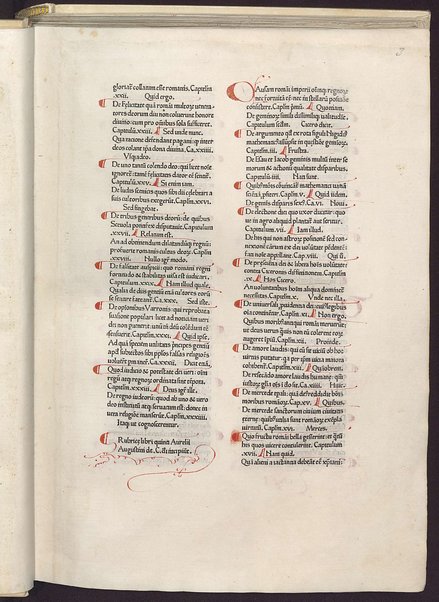 gloriaꝫ collatam esse romanis. Capitulu
.xxii. Quid ergo.
De felicitate quā romāi multorꝫ uenera
tores deorum diu non coluerunt honore
diuino: cum pro omnibus sola sufficeret.
Capitulū .xxiii. Sed unde nunc.
Qua ratione defendant pagani: qp inter
deos colant ipsa dona diuina. Ca. xxiiii.
Vsquadeo.
De uno tantū colendo deo: qui licet noīe
ignoret: tamē felicitatis dator eē sentit.
Capitulū .xxv. Si enim tam.
De ludis scenicis quos sibi dii celebrari a
suis cultoribus exegerūt. Capitlm .xxvi.
Sed fingebat.
De tribus generibus deorū: de quibus
Sceuola pontifex disputauit. Capitulum
.xxvii. Relatum est.
An ad obtinendum dilatandūqꝫ regnū:
profuerit romanis cultus deorꝫ. Capitlm
.xxviii. Nullo igit modo.
De falsitate auspicii: quo romani regni
fortitudo & stabilitas uisa est iudicari.
Capitulum .xxix. Nam illud quale.
Qualia de diis gentiū etiā cultores eorū
se sentire fateant. Ca. xxx. Sed iste.
De opinionibus Varronis: qui reprobata
suasione populari licet ad notitiam ueri
dei non puenerit: unū tn̄ deū colēdum cē
Capitulum .xxxi. Quid ipse.
Ad quā speciem utilitatis principes gentiū
apd subiectos sibi pplos falsas religiōes
uoluerīt pmanere. Ca. xxxii. Dicit etiā.
Quod iudicio & potestate dei ueri oīm
regū atqꝫ regnorꝫ ordinata sint tēpora.
Capitulum .xxxiii. Deus igit ille.
De regno iudeorū: quod ab uno & uero
deo institutū atqꝫ seruatum est: donec in
uera religiōe manserūt. Capitlm .xxxiiii.
Itaqꝫ ut cognosceretur.
Rubrice libri quinti Aurelii
Augustini de. C. d. incipiūt.
Causam romāi imperii oīmqꝫ regnorꝫ
nec fortuitā eē: nec in stellarū positiōe
consistere. Capitlm primū. Quoniam.
De geminorꝫ simili dissimiliqꝫ ualetudīe.
Capitulum secdm. Cicero dicit.
De argumento qd ex rota figuli Nigidiꝰ
mathematicꝰ assumpsit in quęstiōe geminorꝫ.
Capitlm .iii. Frustra.
De Esau et Iacob geminis multū inter se
morum & actionū qualitate disparibus.
Capitulū .iiii. Nati sunt.
Quibꝰ mōis cōuincat mathematici uana
sciētiā pfiteri. Capitlm .v. Quid idem.
De geminis disparis sexꝰ. Ca. vi Noui.
De electione diei quo uxor ducitur quo
ue in agro aliquid plantat aut seritur.
Capitulum .vii. Iam illud.
De his qui non astrorꝫ positionē sed con
nexionē causarum ex dei uoluntate pēdentē
fati noīe appellant. Cap. viii. Qui u.
De pręscientia dei & libera hoīs uolūtate
contra Ciceronis diffinitionem. Capitlm
.ix. Hos Cicero.
An uoluntatibus hoīm aliqua dominet
necessitas. Capitlm .x. Vnde nec illa.
De uniuersali prouidentia dei cuiꝰ legibus
oīa continent. Capitlm .xi. Hon ergo.
Quibus moribꝰ antiqui romāi meruerīt
ut deus uerus quis non eū colerent eorꝫ
augeret īpiū. Capitlm .xii. Proinde.
De amore laudis: qui cū sit uiciū ob hoc
uirtus putatur: qa per ipsm maiora uitia
cohibent. Capitlm .xiii. Quāobrem.
De resecādo amore laudis humanę: qm
iustorꝫ glia oīs ī deo sit. Ca. xiiii. Huic.
De mercede tpali: quā deꝰ reddidit bōis
moribus romāorꝫ. Cap. xv. Quibus.
De mercede sanctorum ciuium ciuitatis
eternę: quibꝰ utilia sunt romāorꝫ exēpla
uirtutū. Capitlm .xvi. Merces.
Quo fructu romāi bella gesserint: et qtū
his quos uicere contulerint. Capitulum
.xvii. Nam quid.
Quā alieni a iactantia debeāt eē xpiani: